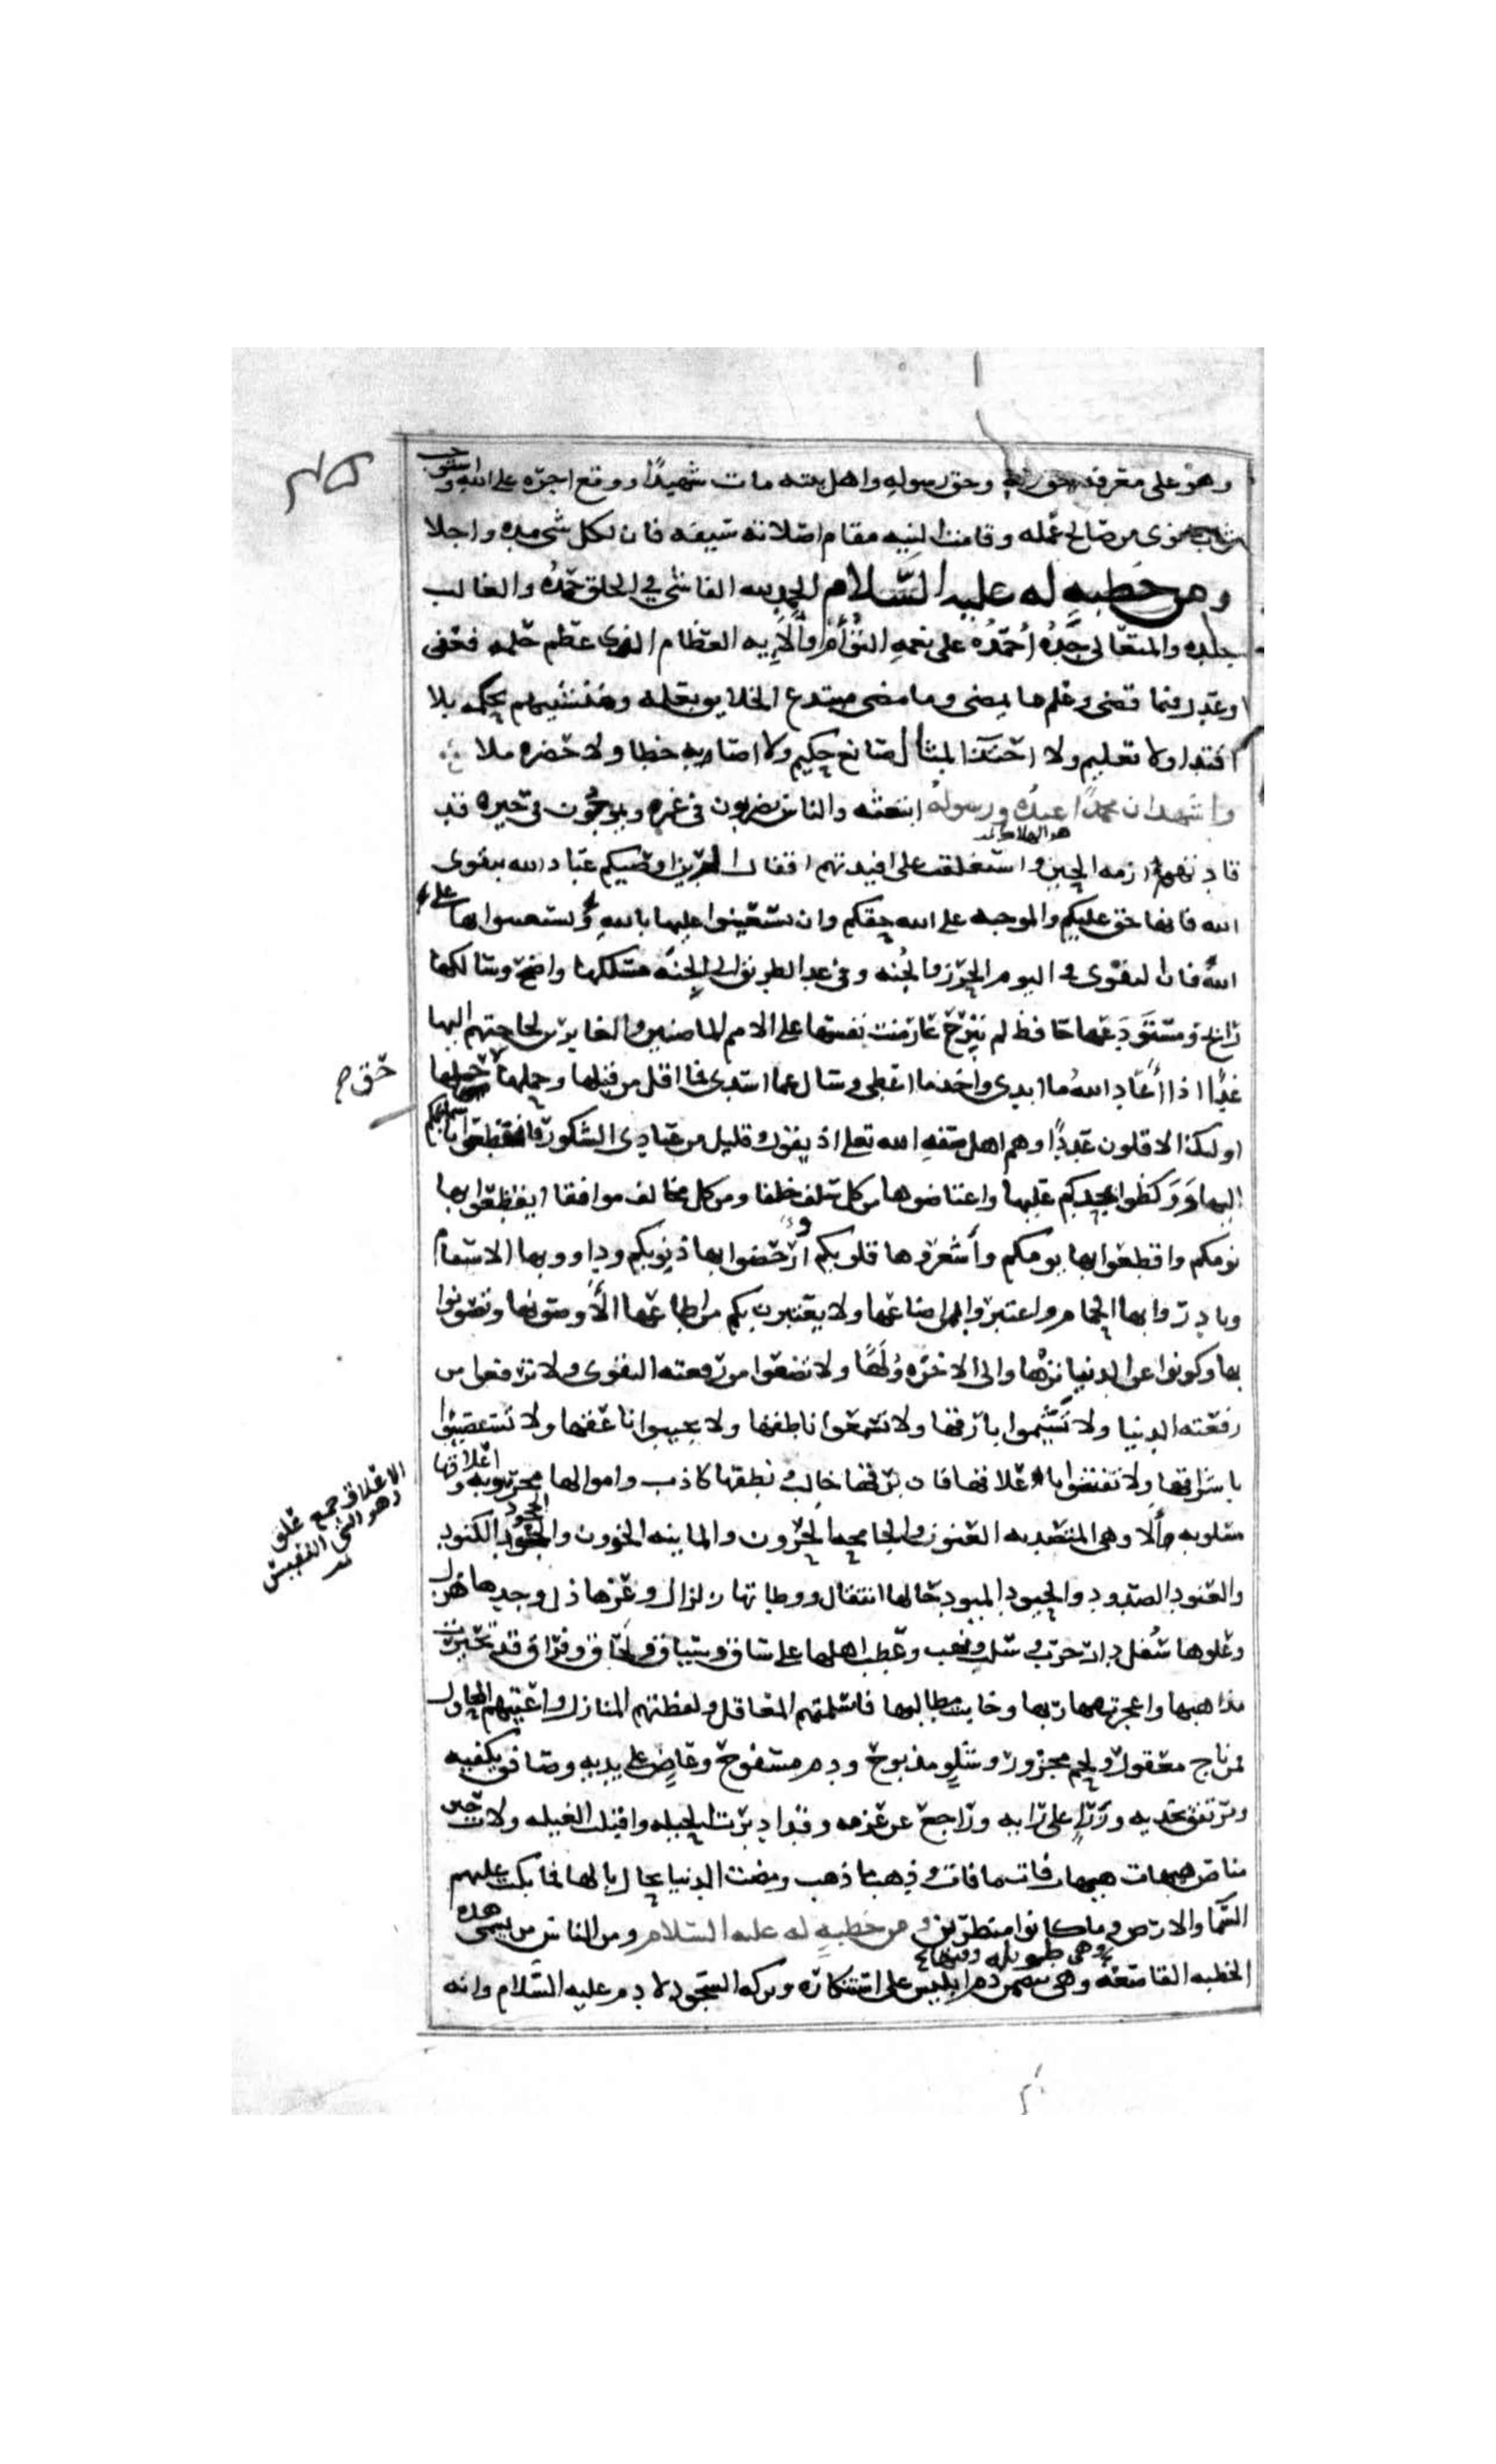 وهو على معرفة حق ربه وحق رسوله واهل بيته مات شهيدا ووقع اجره على الله واستوجب
ثواب ما نوى من صالح عمله وقامت النيه مقام اصلاته سيفه فان لكل شى مده واجلا
ومن خطبه له عليه السلام الحمد لله الفاشى في الخلق حمده والغالب
جنده والمتعالى جده احمده على نعمه التؤام وآلايه العظام الذى عظم حلمه فعفى
وعدل فيما قضى وعلم ما يمضى وما مضى مبتدع الخلايق بعلمه ومنشيهم بحكمه بلا
اقتدا ولا تعليم ولا احتذا لمثال صانع حكيم ولا اصابه خطا ولا حضره ملا
واشهد ان محمدا عبده ورسوله ابتعثه والناس يضربون في غمره ويموجون في حيره قد
قادتهم ازمه الحين واستغلقت على افيدتهم اقفال الرين اوصيكم عباد الله بتقوى
الله فانها حق عليكم والموجبه على الله حقكم وان تستعينوا عليها بالله وتستعينوا بها على
الله فان التقوى في اليوم الحرز والجنه وفي غد الطريق الى الجنه مسلكها واضح وسالكها
رابح ومستودعها حافظ لم تبرح عارضه نفسها على الامم الماضين والغابرين لحاجتهم اليها
غدا اذا اعاد الله ما ابدى واخذ ما اعطى وسال عما اسدى فما اقل من قبلها وحملها حق حملها
حق صح
اوليك الاقلون عددا وهم اهل صفه الله تعلى اذ يقول وقليل من عبادى الشكور فاهطعوا باسماعكم
اليها وواكظوا بجدكم عليها واعتاضوها من كل سلف خلفا ومن كل مخالف موافقا ايقظوا بها
نومكم واقطعوا بها يومكم واشعروها قلوبكم وارحضوا بها ذنوبكم وداووا بها الاسقام
وبادروا بها الحمام واعتبروا بمن اضاعها ولا يعتبرن بكم من اطاعها الا وصونوها وتصونوا
بها وكونوا عن الدنيا نزاها والى الاخره ولاها ولا تضعوا من رفعته التقوى ولا ترفعوا من
رفعته الدنيا ولا تشيموا بارقها ولا تسمعوا ناطقها ولا تجيبوا ناعقها ولا تستضيوا
باشراقها ولا تفتنوا باعلاقها فان برقها خالب ونطقها كاذب واموالها محروبه واعلاقها
الاعلاق جمع علق
وهو الشى النفيس
مسلوبه الا وهى المتصديه العنون والجامحه الحرون والماينه الخوون والجحود الكنود
والعنود الصدود والحيود الميود حالها انتقال ووطاتها زلزال وعزها ذل وجدها هزل
وعلوها سفل دار حرب وسلب ونهب وعطب اهلها على ساق وسياق ولحاق وفراق قد تحيرت
مذاهبها واعجزت مهاربها وخابت مطالبها فاسلمتهم المعاقل ولفظتهم المنازل واعيتهم المحاول
فمن ناج معقور ولحم مجزور وشلو مذبوح ودم مسفوح وعاض على يديه وصافق بكفيه
ومرتفق بخديه وزار على رايه وراجع عن عزمه وقد ادبرت الحيله واقبلت الغيله ولات حين
مناص هيهات هيهات فات ما فات وذهب ما ذهب ومضت الدنيا بحال بالها فما بكت عليهم
السما والارض وما كانوا منظرين ومن خطبه له عليه السلام ومن الناس من يسمى هذه
الخطبه القاصعه وهى تتضمن ذم ابليس على استكباره وتركه السجود لادم عليه السلام وانه